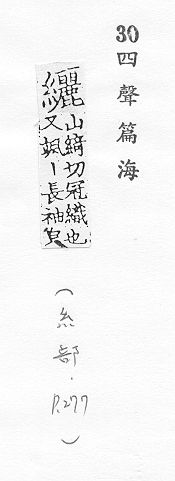 30四聲篇海
纚山綺切冠織也
又颯丨長袖皃
（糸部．P.277）